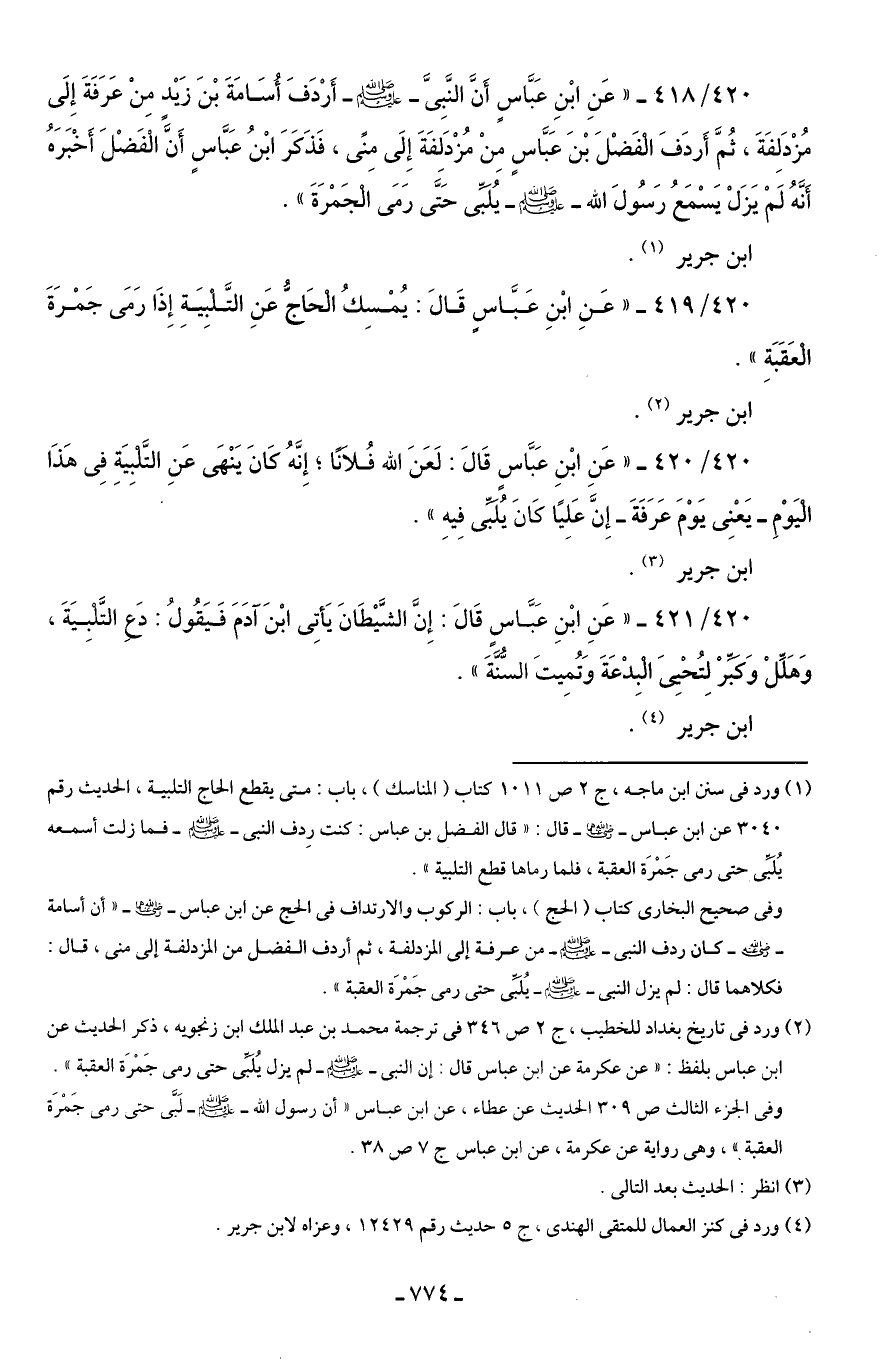 ٤١٨/٤٢٠ ـ « عَنِ ابْنِ عَبَّاسٍ أَنَّ النَّبِىَّ ـ ﷺ ـ أَرْدَفَ أُسَـامَةَ بْنَ زَيْدٍ مِنْ عَرَفَةَ إِلَى
مُزْدَلِفَةَ ، ثُمَّ أَردَفَ الْفَضْلَ بْنَ عَبَّاسٍ مِنْ مُزْدَلِفَةَ إِلَى مِنًى ، فَذَكَرَ ابْنُ عَبَّاسٍ أَنَّ الْفَضْلَ أَخْبَرَهُ
أَنَّهُ لَمْ يَزَلْ يَسْمَعُ رَسُولَ الله ـ ﷺ ـ يُلَبِّى حَتَّى رَمَى الْجَمْرَةَ » .
ابن جرير (١) .
٤١٩/٤٢٠ ـ « عَـنِ ابْنِ عَـبَّـاسٍ قَـالَ : يُمْـسِكُ الْحَاجُّ عَنِ التَّـلْبِيَـةِ إِذَا رَمَى جَمْـرَةَ
الْعَقَبَةِ » .
ابن جرير (٢) .
٤٢٠/٤٢٠ ـ « عَنِ ابْنِ عَبَّاسٍ قَالَ : لَعَنَ الله فُـلَانًا ؛ إِنَّهُ كَانَ يَنْهَى عَنِ التَّلْبِيَةِ فِى هَذَا
الْيَوْمِ ـ يَعْنِى يَوْمَ عَرَفَةَ ـ إِنَّ عَلِيًا كَانَ يُلَبِّى فِيهِ » .
ابن جرير (٣) .
٤٢١/٤٢٠ ـ « عَنِ ابْنِ عَبَّـاسٍ قَالَ : إِنَّ الشَّيْطَانَ يَأتِى ابْنَ آدَمَ فَـيَقُولُ : دَعِ التَّلْبِـيَةَ ،
وَهَلِّلْ وَكَبِّرْ لِتُحْيِىَ الْبِدْعَةَ وَتُمِيتَ السُّنَّةَ » .
ابن جرير (٤) .
(١) ورد فى سنن ابن ماجـه ، ج ٢ ص ١٠١١ كتاب ( المناسك ) ، باب : مـتى يقطع الحاج التلبيـة ، الحديث رقم
٣٠٤٠ عن ابن عبـاس ـ رضي الله عنهما ـ قال : « قال الفـضل بن عباس : كنت رِدف النبى ـ ﷺ ـ فـما زلت أسمـعه
يُلَبِّى حتى رمى جَمْرَة العقبة ، فلما رماها قطع التلبية » .
وفى صحيح البخارى كتاب ( الحج ) ، باب : الركوب والارتداف فى الحج عن ابن عباس ـ رضي الله عنهما ـ « أن أسامة
ـ رضي الله عنه ـ كـان ردف النبى ـ ﷺ ـ من عـرفـة إلى المزدلفـة ، ثم أردف الـفضـل من المزدلفـة إلى منى ، قـال :
فكلاهما قال : لم يزل النبى ـ ﷺ ـ يُلَبِّى حتى رمى جَمْرَة العقبة » .
(٢) ورد فى تاريخ بغداد للخطيب ، ج ٢ ص ٣٤٦ فى ترجمة محمـد بن عبد الملك ابن زنجويه ، ذكر الحديث عن
ابن عباس بلفظ : « عن عكرمة عن ابن عباس قال : إن النبى ـ ﷺ ـ لم يزل يُلَبِّى حتى رمى جَمْرَة العقبة » .
وفى الجزء الثالث ص ٣٠٩ الحديث عن عطاء ، عن ابن عبـاس « أن رسول الله ـ ﷺ ـ لَبَّى حتى رمى جَمْرَة
العقبة » ، وهى رواية عن عكرمة ، عن ابن عباس ج ٧ ص ٣٨ .
(٣) انظر : الحديث بعد التالى .
(٤) ورد فى كنز العمال للمتقى الهندى ، ج ٥ حديث رقم ١٢٤٢٩ ، وعزاه لابن جرير .
ـ ٧٧٤ ـ